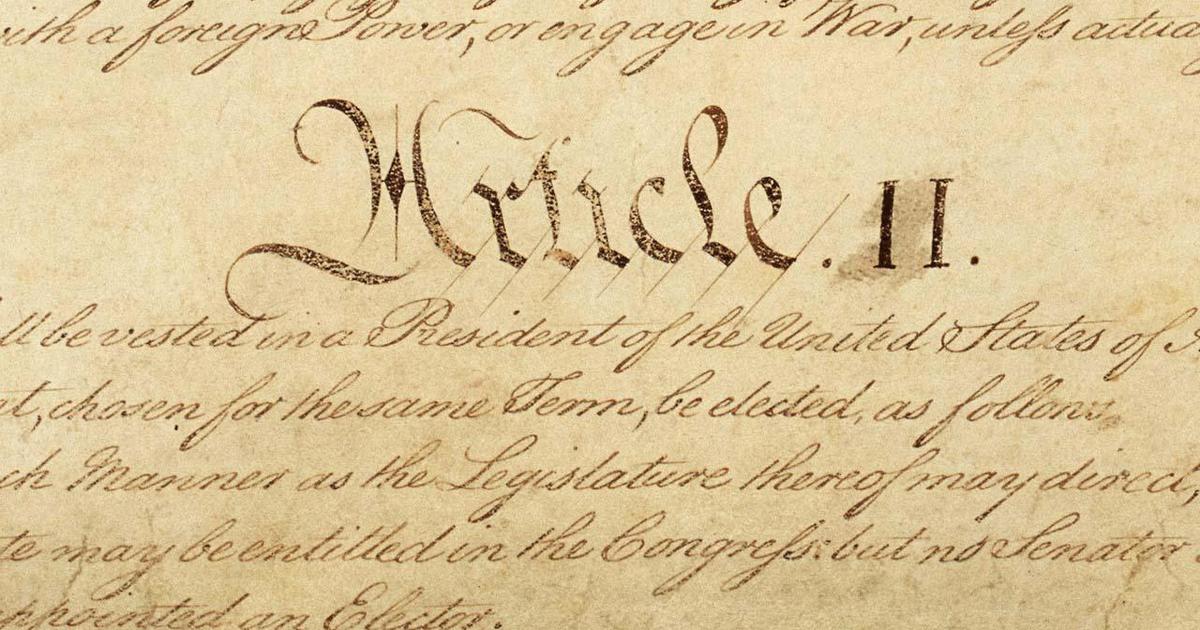 with a foreign Power, or engage in War, unless actua
Article. II.
ll be vested in a President of the United States of A
nt, chosen for the same Term, be elected, as follows
ch Manner as the Legislature thereof may direct,
te may be entitled in the Congress: but no Senator
appointed an Elector.